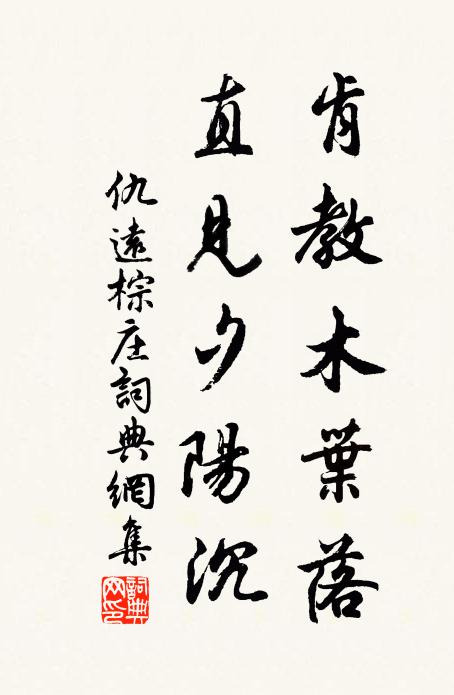 肯教木葉落
直見夕陽沉
仇遠棕庄詞典網集
詞典網印